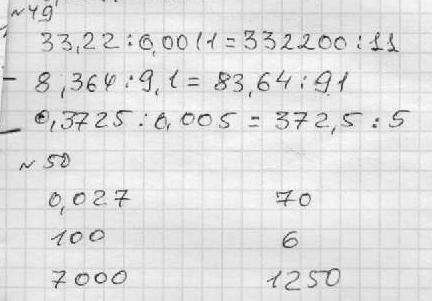 №49
33,22:0,0011=332200:11
8,364:9,1=83,64:91
0,3725:0,005=372,5:5
№50
0,027 70
100 6
7000 1250